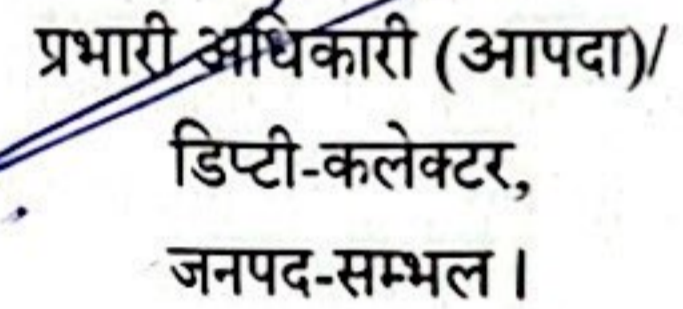 प्रभारी अधिकारी (आपदा)/
डिप्टी-कलेक्टर,
जनपद-सम्भल ।